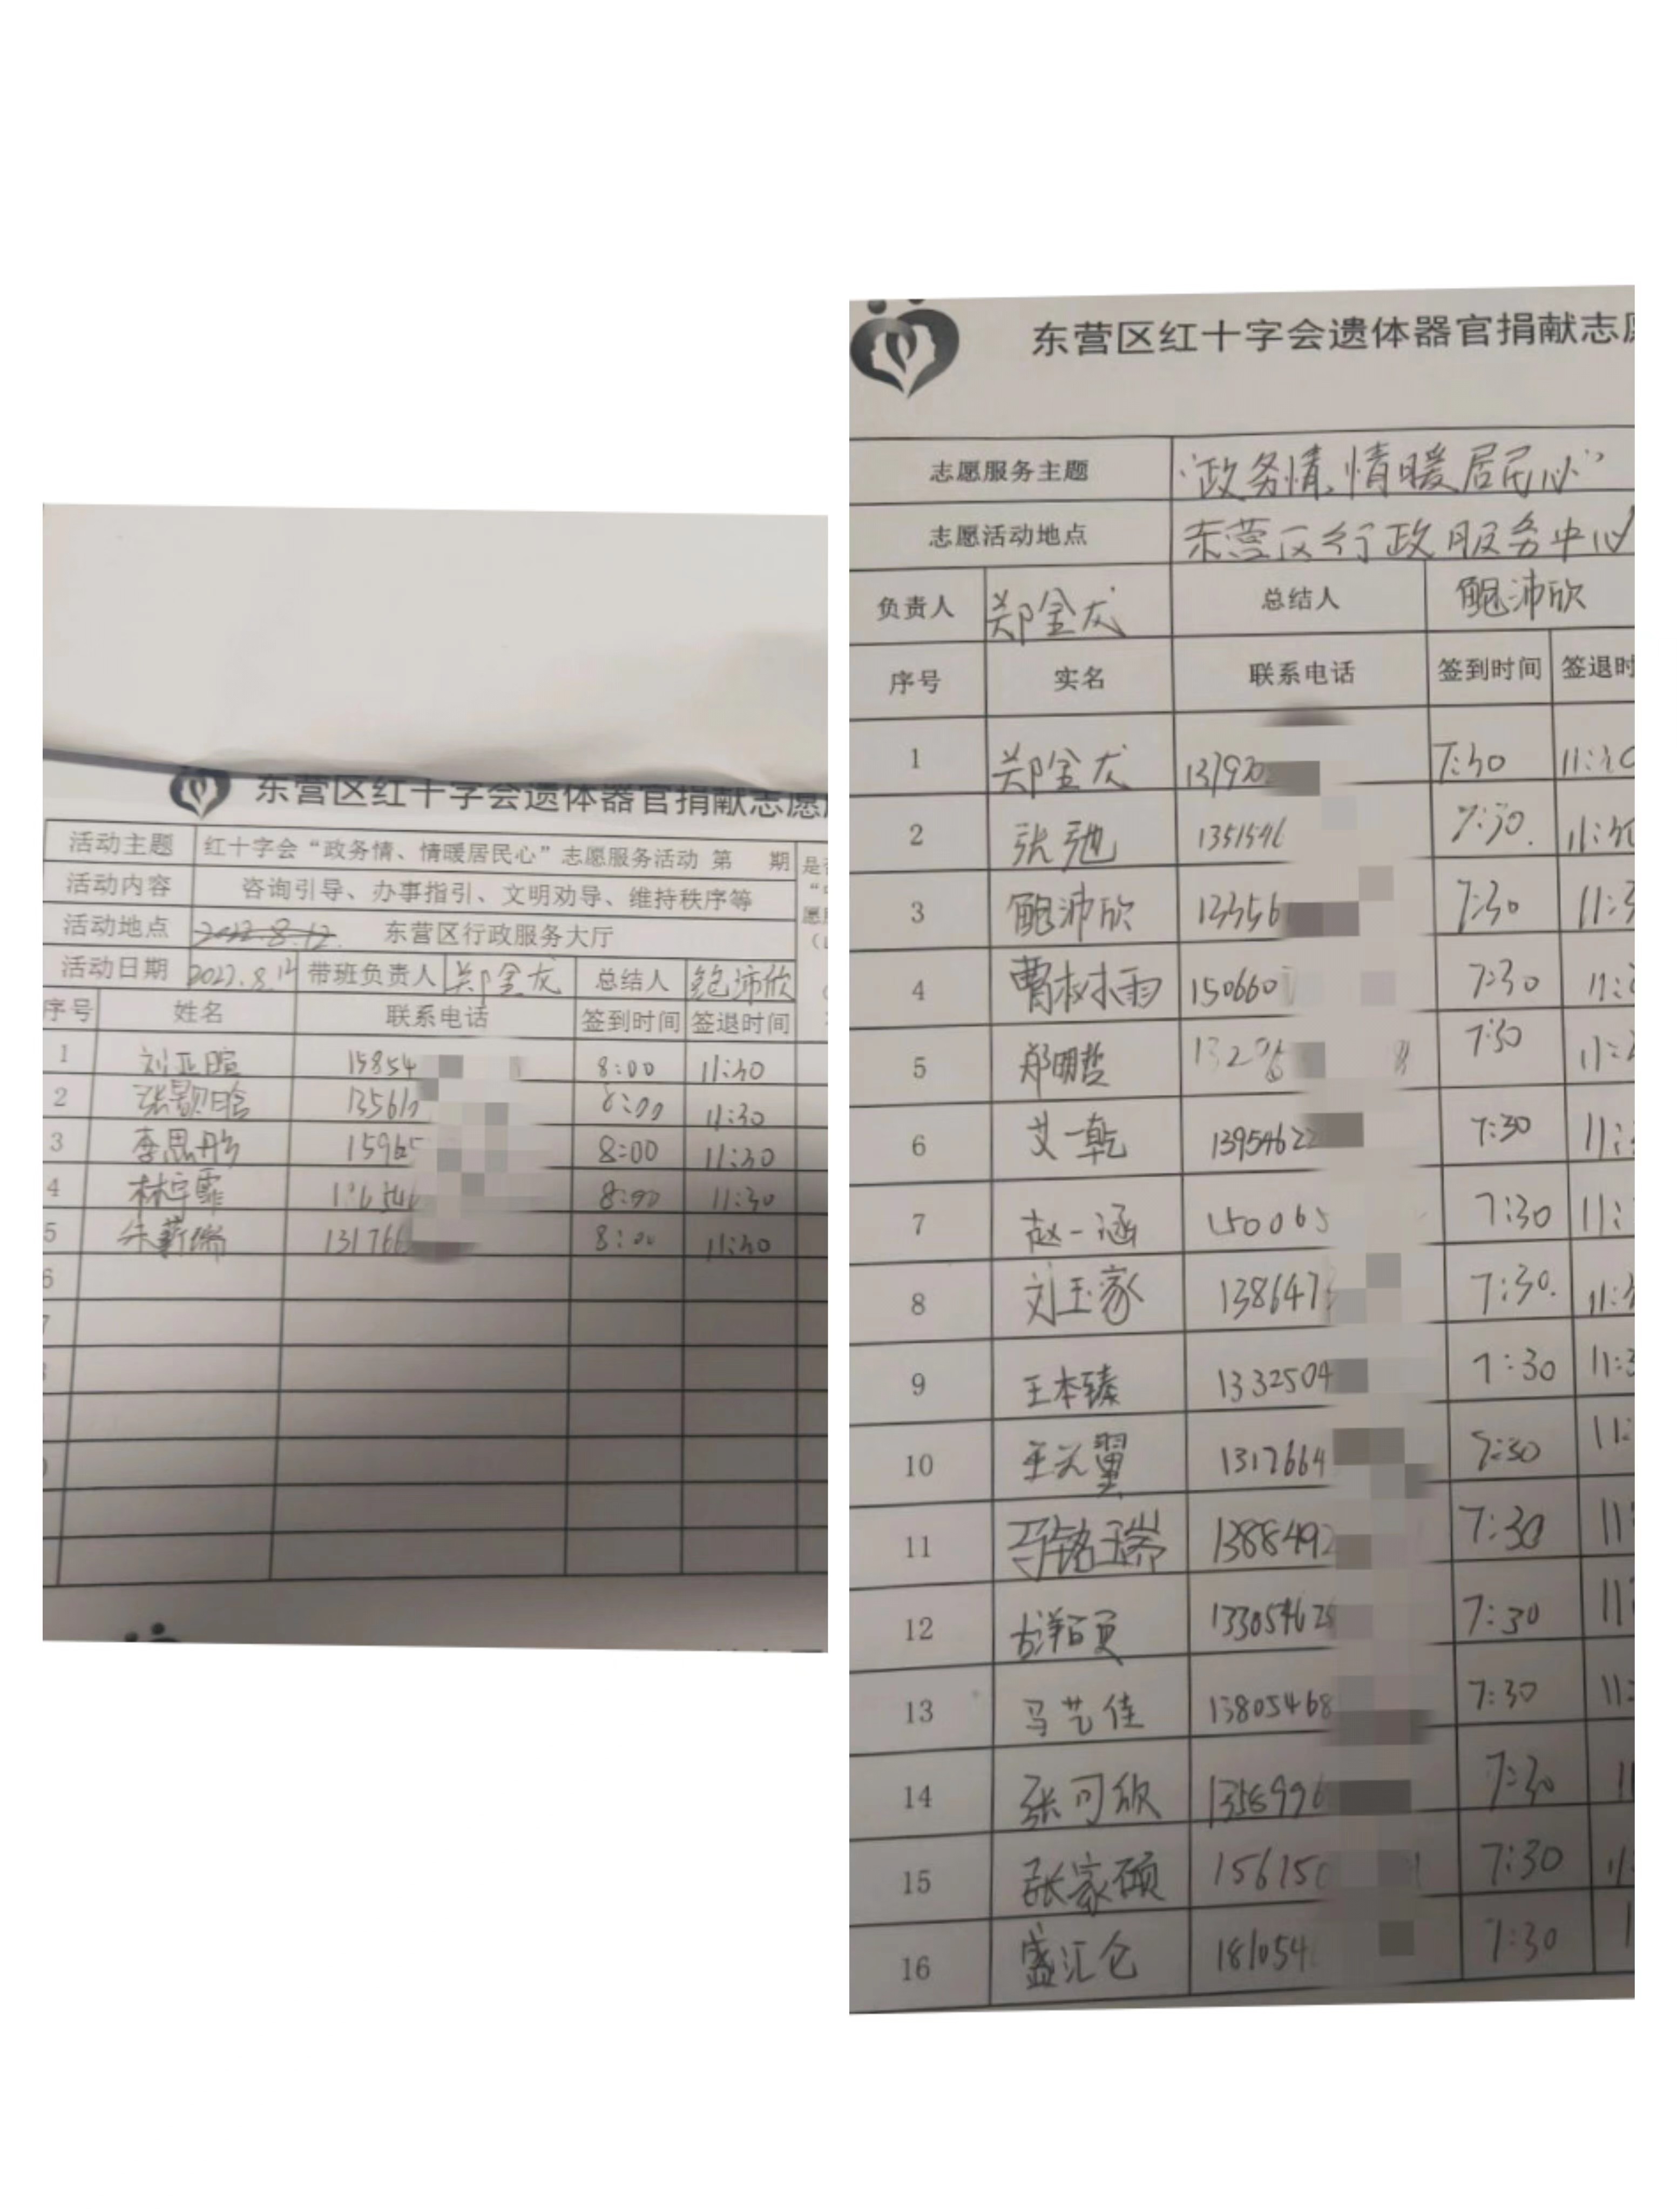 东营区红十字会遗体器官捐献志愿
活动主题 红十字会“政务情、情暖居民心”志愿服务活动 第 期
活动内容 咨询引导、办事指引、文明劝导、维持秩序等
活动地点 2022.8.12. 东营区行政服务大厅
活动日期 2022.8.12 带班负责人 郑金龙 总结人 鲍沛欣
序号 姓名 联系电话 签到时间 签退时间
1 刘亚暄 15854 8:00 11:30
2 13561 8:00 11:30
3 李思彤 15965 8:00 11:30
4 林宇霏 8:00 11:30
5 朱薪瑞 131766 8:00 11:30
6
东营区红十字会遗体器官捐献志愿
志愿服务主题 “政务情、情暖居民心”
志愿活动地点 东营区行政服务中心
负责人 郑金龙 总结人 鲍沛欣
序号 实名 联系电话 签到时间 签退时
1 郑金龙 137920 7:30 11:30
2 张弛 1351546 7:30. 11:30
3 鲍沛欣 13356 7:30 11:3
4 曹树雨 150660 7:30 11:
5 郑明哲 13296 7:30 11:
6 艾一乾 13954622 7:30 11:
7 赵一涵 150065 7:30 11:
8 刘玉家 138647 7:30. 11:3
9 王本臻 1332504 7:30 11:3
10 王元翼 1317664 7:30 11:
11 马铭瑞 1388492 7:30 11
12 13305462 7:30 11
13 马艺佳 13805468 7:30 11:
14 张可欣 1358996 7:30 11
15 张家硕 15615 7:30 11
16 盛汇仑 181054 7:30 1